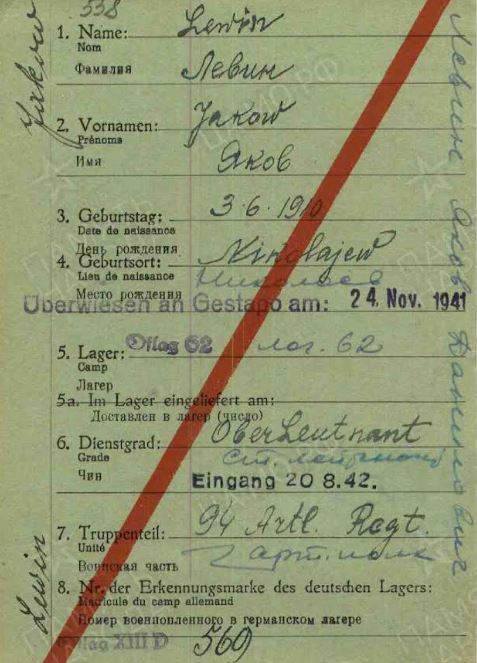 538
1. Name: Lewin
Nom
Фамилия Левин
Jakow
2. Vornamen: Jakow
Prénoms
Имя Яков
3. Geburtstag: 3·6·1910
Date de naissance
День рождения
4. Geburtsort: Nikolajew
Lieu de naissance
Николаев
Место рождения
Überwiesen an Gestapo am: 24. Nov. 1941
5. Lager: Oflag 62 лаг. 62
Camp
Лагерь
5a. Im Lager eingeliefert am:
Доставлен в лагер (число)
6. Dienstgrad: Oberleutnant
Grade
Чин
Ст. лейтенант
Eingang 20 8.42.
7. Truppenteil: 94 Artl. Regt.
Unité
Воинская часть
арт. полк
8. Nr. der Erkennungsmarke des deutschen Lagers:
Matricule du camp allemand
Номер военнопленного в германском лагере
Oflag XIII D 560
Lewin
Левин Яков Данилович